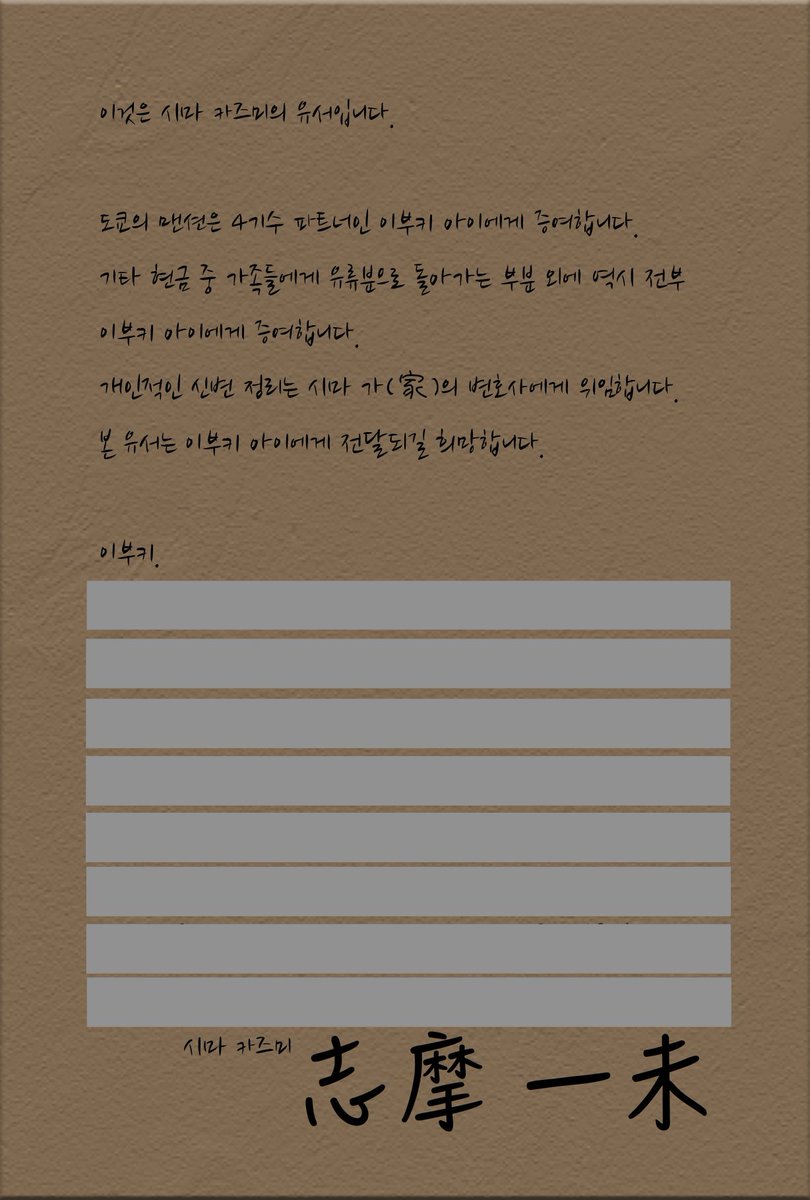 이것은 시마 카즈미의 유서입니다.
도쿄의 맨션은 4기수 파트너인 이부키 아이에게 증여합니다.
기타 현금 중 가족들에게 유류분으로 돌아가는 부분 외에 역시 전부
이부키 아이에게 증여합니다.
개인적인 신변 정리는 시마 가(家)의 변호사에게 위임합니다.
본 유서는 이부키 아이에게 전달되길 희망합니다.
이부키.
시마 카즈미 志摩 一未